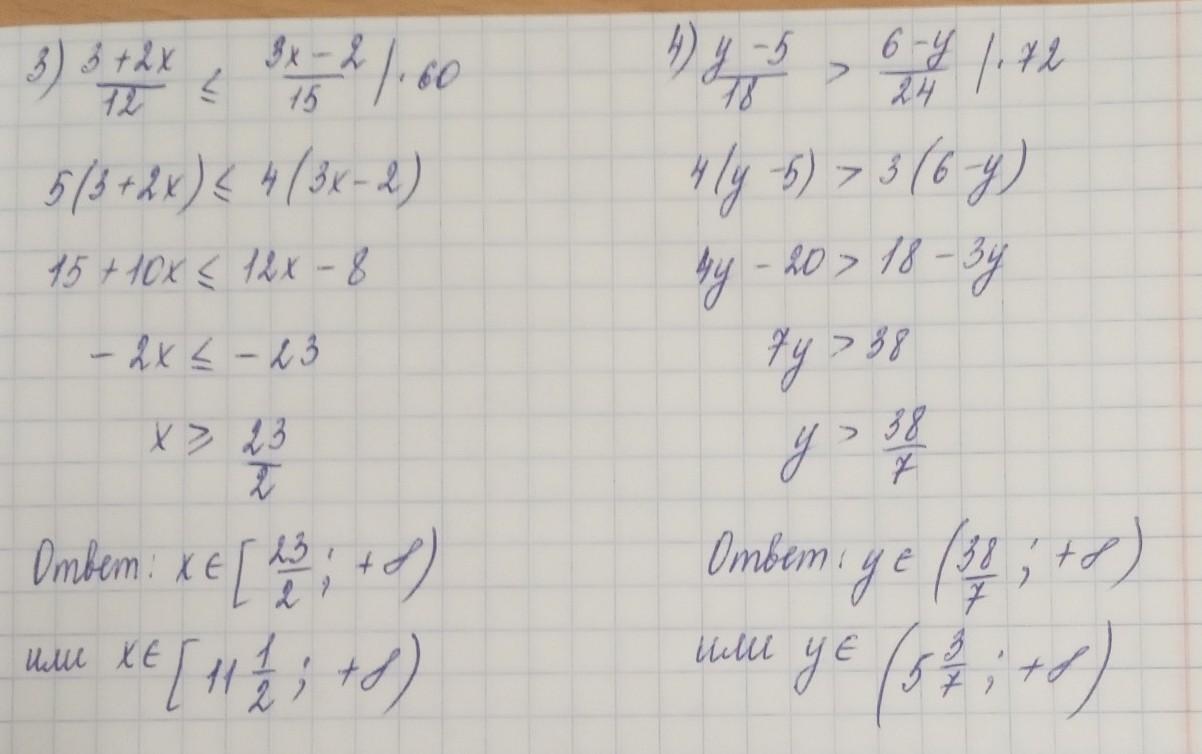 3) (3+2x)/12 ≤ (3x-2)/15 |·60
5(3+2x) ≤ 4(3x-2)
15+10x ≤ 12x-8
-2x ≤ -23
x ≥ 23/2
Ответ: x ∈ [23/2; +∞)
или x ∈ [11 1/2; +∞)
4) (y-5)/18 > (6-y)/24 |·72
4(y-5) > 3(6-y)
4y-20 > 18-3y
7y > 38
y > 38/7
Ответ: y ∈ (38/7; +∞)
или y ∈ (5 3/7; +∞)